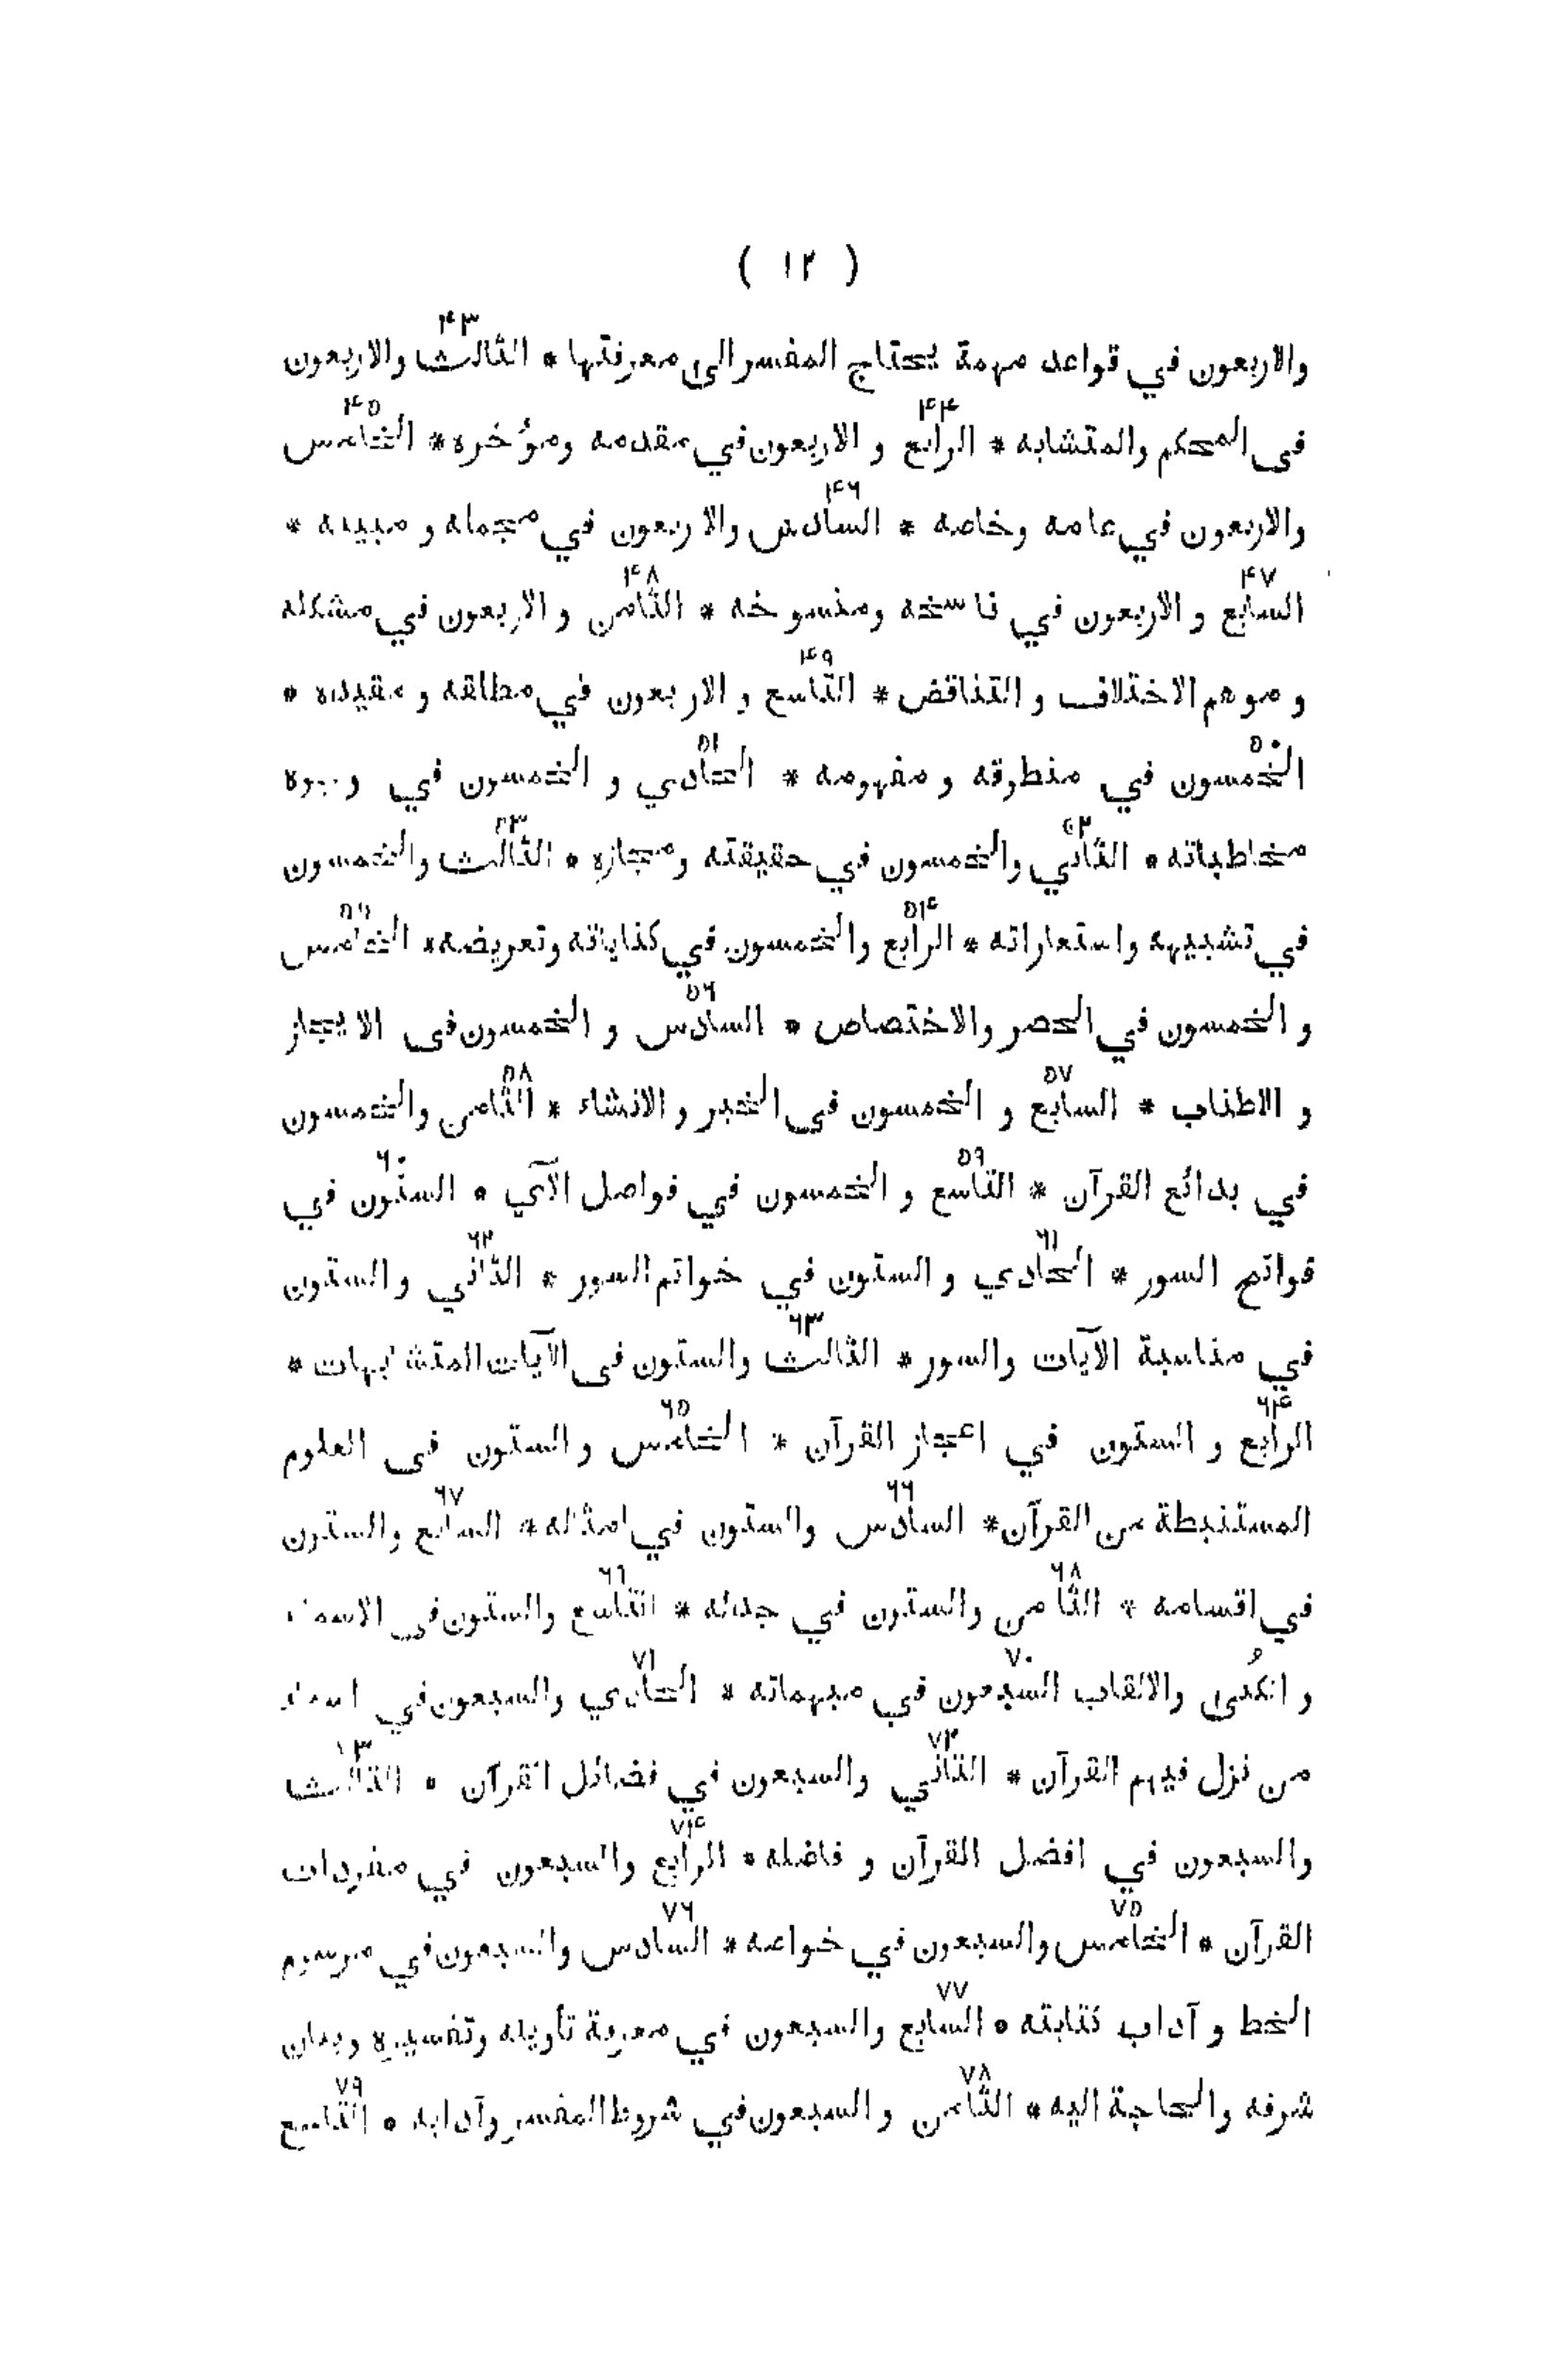 ( ۱۲ )
والاربعون في قواعد مهمة يحتاج المفسر الى معرفتها * الثالث والاربعون
۴۳
فى المحكم والمتشابه * الرابع و الاربعون في مقدمه ومؤخره * الخامس
۴۴ ۴۵
والاربعون في عامه وخاصه * السادس والاربعون في مجمله و مبينه *
۴۶
السابع و الاربعون في ناسخه ومنسوخه * الثامن و الاربعون في مشكله
۴۷ ۴۸
و موهم الاختلاف و التناقض * التاسع و الاربعون في مطلقه و مقيده *
۴۹
الخمسون في منطوقه و مفهومه * الحادي و الخمسون في وجوه
۵۰ ۵۱
مخاطباته * الثاني والخمسون في حقيقته ومجازه * الثالث والخمسون
۵۲ ۵۳
في تشبيهه واستعاراته * الرابع والخمسون في كناياته وتعريضه * الخامس
۵۴ ۵۵
و الخمسون في الحصر والاختصاص * السادس و الخمسون فى الايجاز
۵۶
و الاطناب * السابع و الخمسون فى الخبر و الانشاء * الثامن والخمسون
۵۷ ۵۸
في بدائع القرآن * التاسع و الخمسون في فواصل الآي * الستون في
۵۹ ۶۰
فواتح السور * الحادي و الستون في خواتم السور * الثاني والستون
۶۱ ۶۲
في مناسبة الآيات والسور * الثالث والستون فى الآيات المتشابهات *
۶۳
الرابع و الستون في اعجاز القرآن * الخامس و الستون فى العلوم
۶۴ ۶۵
المستنبطة من القرآن * السادس والستون في امثاله * السابع والستون
۶۶ ۶۷
في اقسامه * الثامن والستون في جدله * التاسع والستون فى الاسماء
۶۸ ۶۹
و الكُنى والالقاب السبعون في مبهماته * الحادي والسبعون في اسماء
۷۰ ۷۱
من نزل فيهم القرآن * الثاني والسبعون في فضائل القرآن * الثالث
۷۲ ۷۳
والسبعون في افضل القرآن و فاضله * الرابع والسبعون في مفردات
۷۴
القرآن * الخامس والسبعون في خواصه * السادس والسبعون في مرسوم
۷۵ ۷۶
الخط و آداب كتابته * السابع والسبعون في معرفة تأويله وتفسيره وبيان
۷۷
شرفه والحاجة اليه * الثامن و السبعون في شروط المفسر وآدابه * التاسع
۷۸ ۷۹